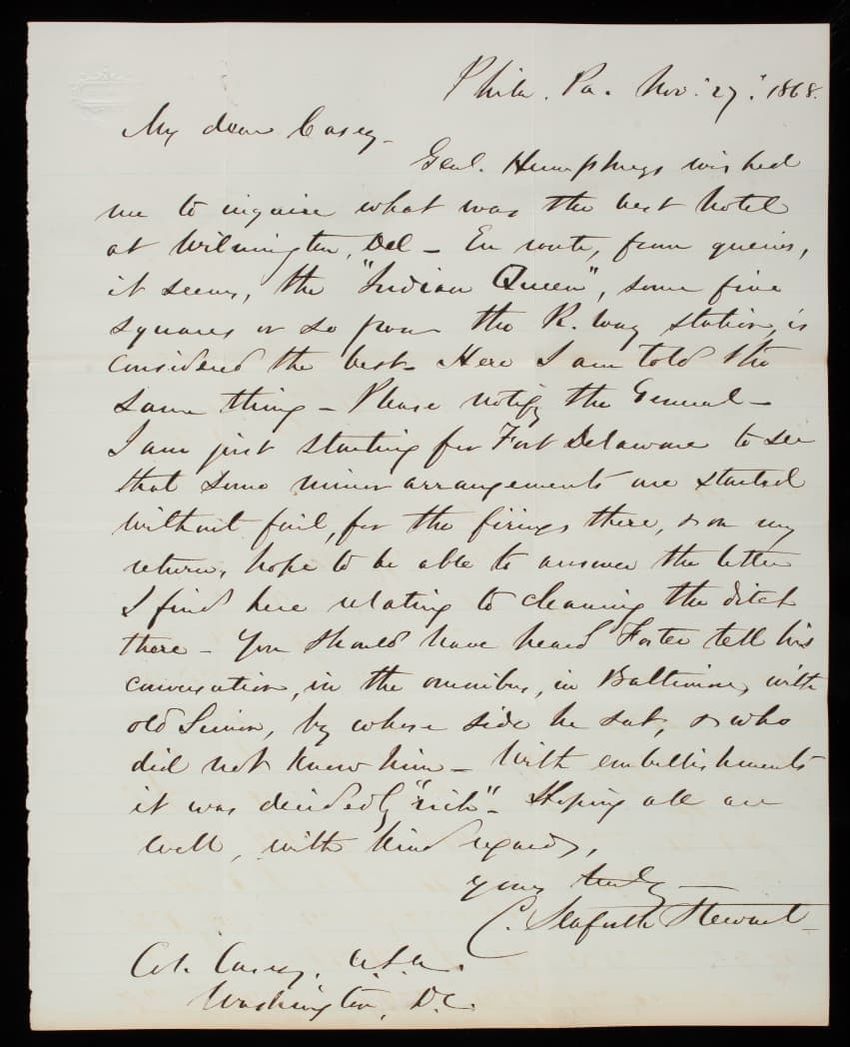 Phila. Pa. Nov. 27. 1868.
My dear Casey -
Genl. Humphreys wished
me to inquire what was the best hotel
at Wilmington, Del - En route, from queries,
it seems, the "Indian Queen", some five
squares or so from the R. way station, is
considered the best. Here I am told the
same thing - Please notify the General -
I am just starting for Fort Delaware to see
that some minor arrangements are started
without fail, for the firings there, & on my
return, hope to be able to answer the letter
I find here relating to cleaning the ditch
there - You should have heard Foster tell his
conversation, in the omnibus, in Baltimore, with
old Simon, by whose side he sat, & who
did not know him - With embellishments
it was decidedly "rich" - Hoping all are
well, with kind regards,
yours truly -
C. Seaforth Stewart
Col. Casey, U.S.A.
Washington, D.C.